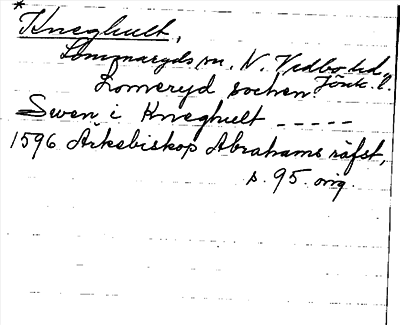 *
Kneghult,
Lommaryds sn. N. Vedbo hd
Lomeryd sochen. Jönk. l.
Swen i Kneghult -----
1596 Ärkebiskop Abrahams räfst,
s. 95. orig.